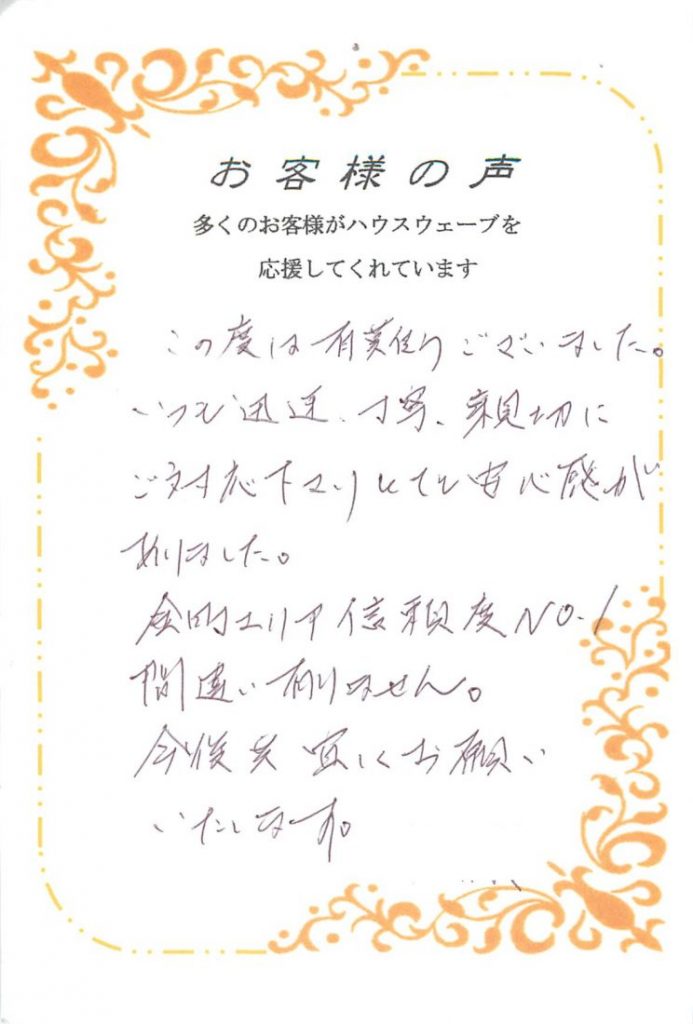 お客様の声
多くのお客様がハウスウェーブを
応援してくれています
この度は有難うございました。
いつも迅速、丁寧、親切に
ご対応下さりとても安心感が
ありました。
エリア信頼度NO.1
間違い有りません。
今後共宜しくお願い
いたします。